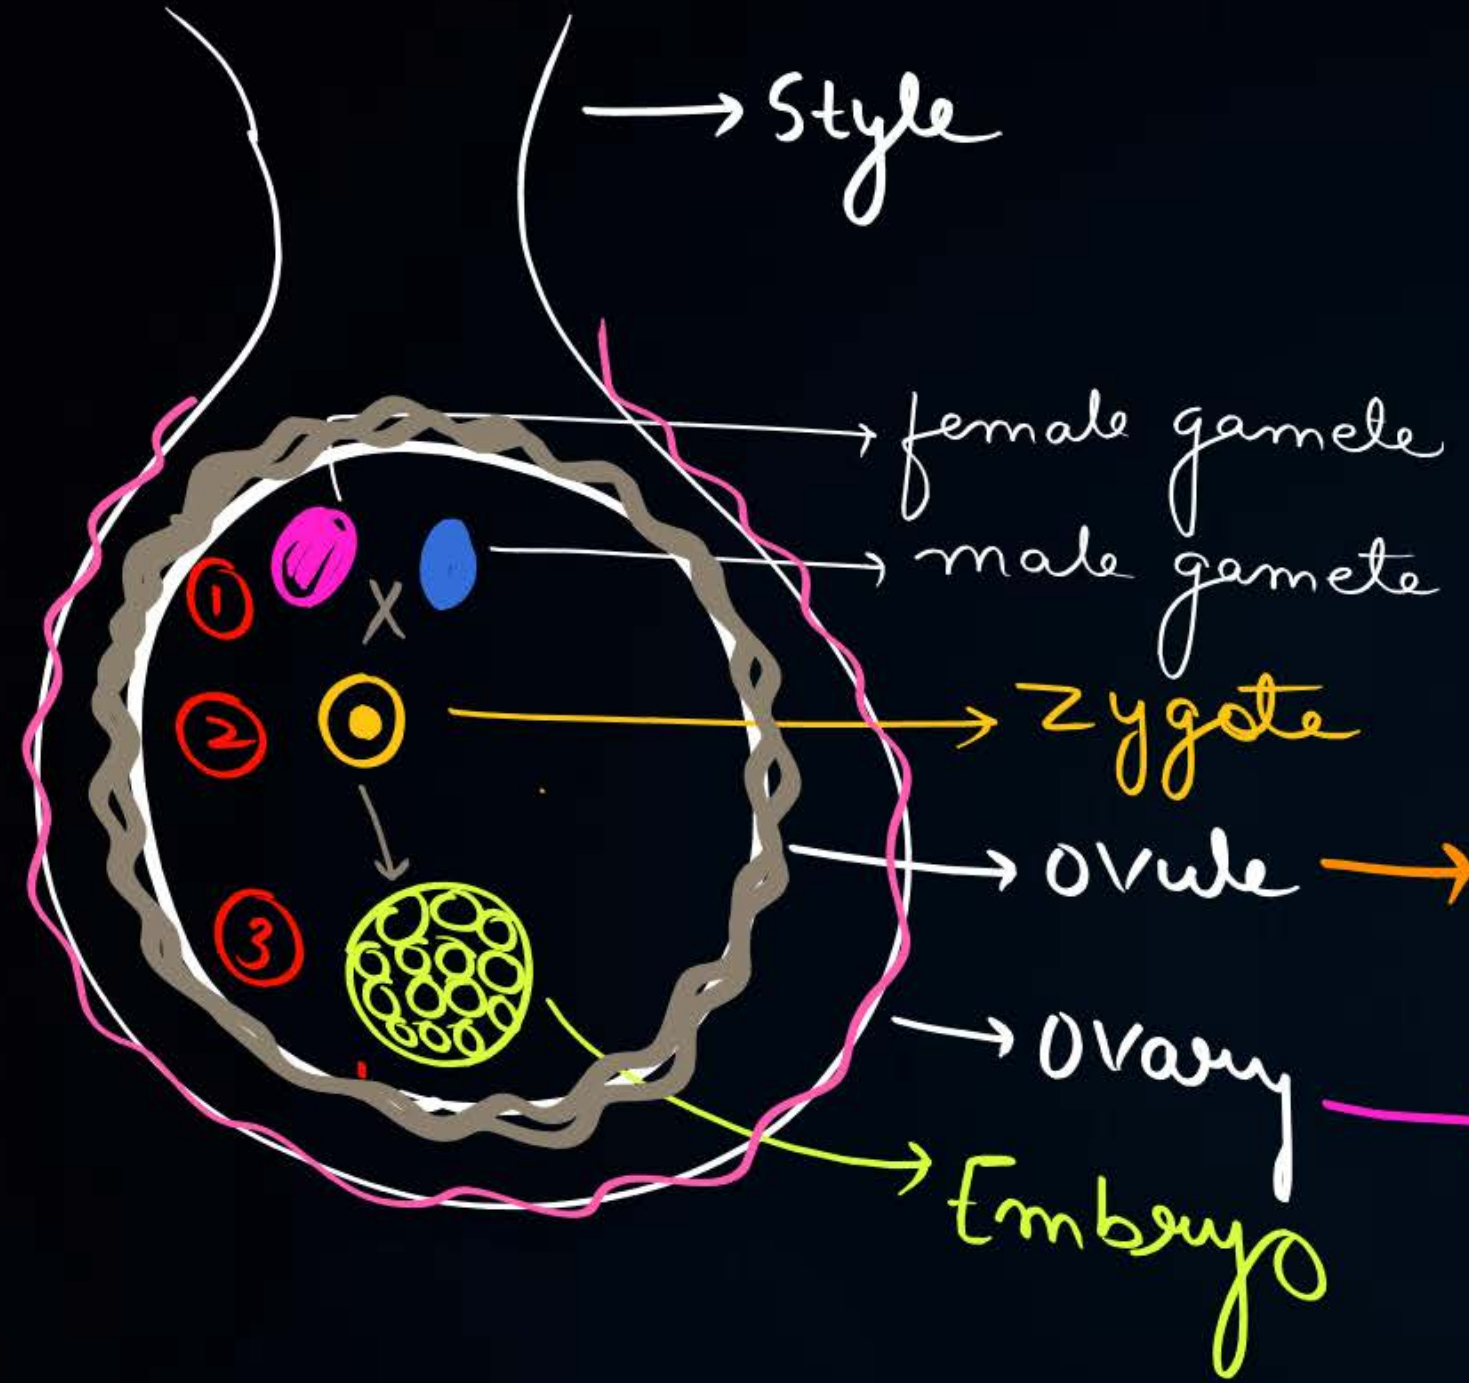 Style
female gamete
male gamete
1
X
2
Zygote
Ovule
3
Ovary
Embryo